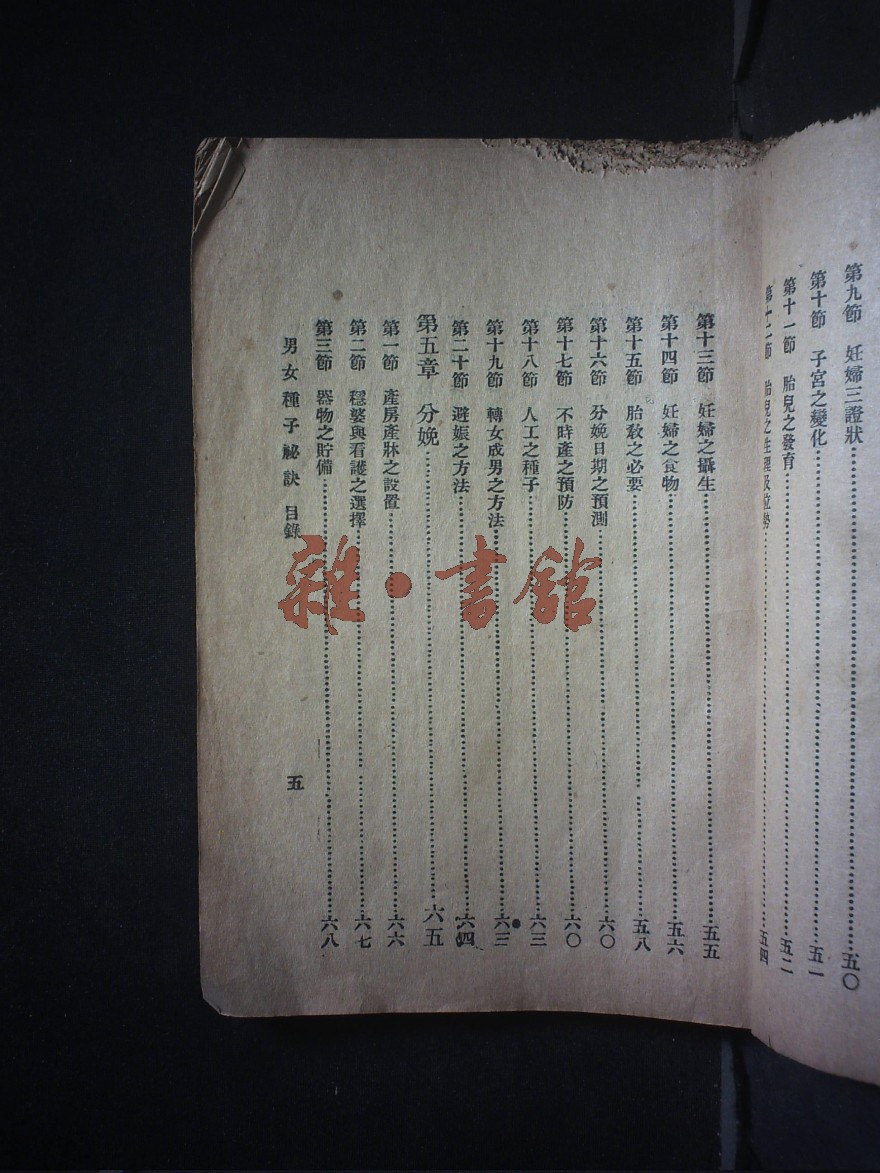 第九節　妊婦三證狀……五〇
第十節　子宮之變化……五一
第十一節　胎兒之發育……五二
第十二節　胎兒之生理及位勢……五四
第十三節　妊婦之攝生……五五
第十四節　妊婦之食物……五六
第十五節　胎敎之必要……五八
第十六節　分娩日期之預測……六〇
第十七節　不時產之預防……六〇
第十八節　人工之種子……六三
第十九節　轉女成男之方法……六三
第二十節　避娠之方法……六四
第五章　分娩……六五
第一節　產房產牀之設置……六六
第二節　穩婆與看護之選擇……六七
第三節　器物之貯備……六八
男女種子祕訣　目錄　五
雜·書館